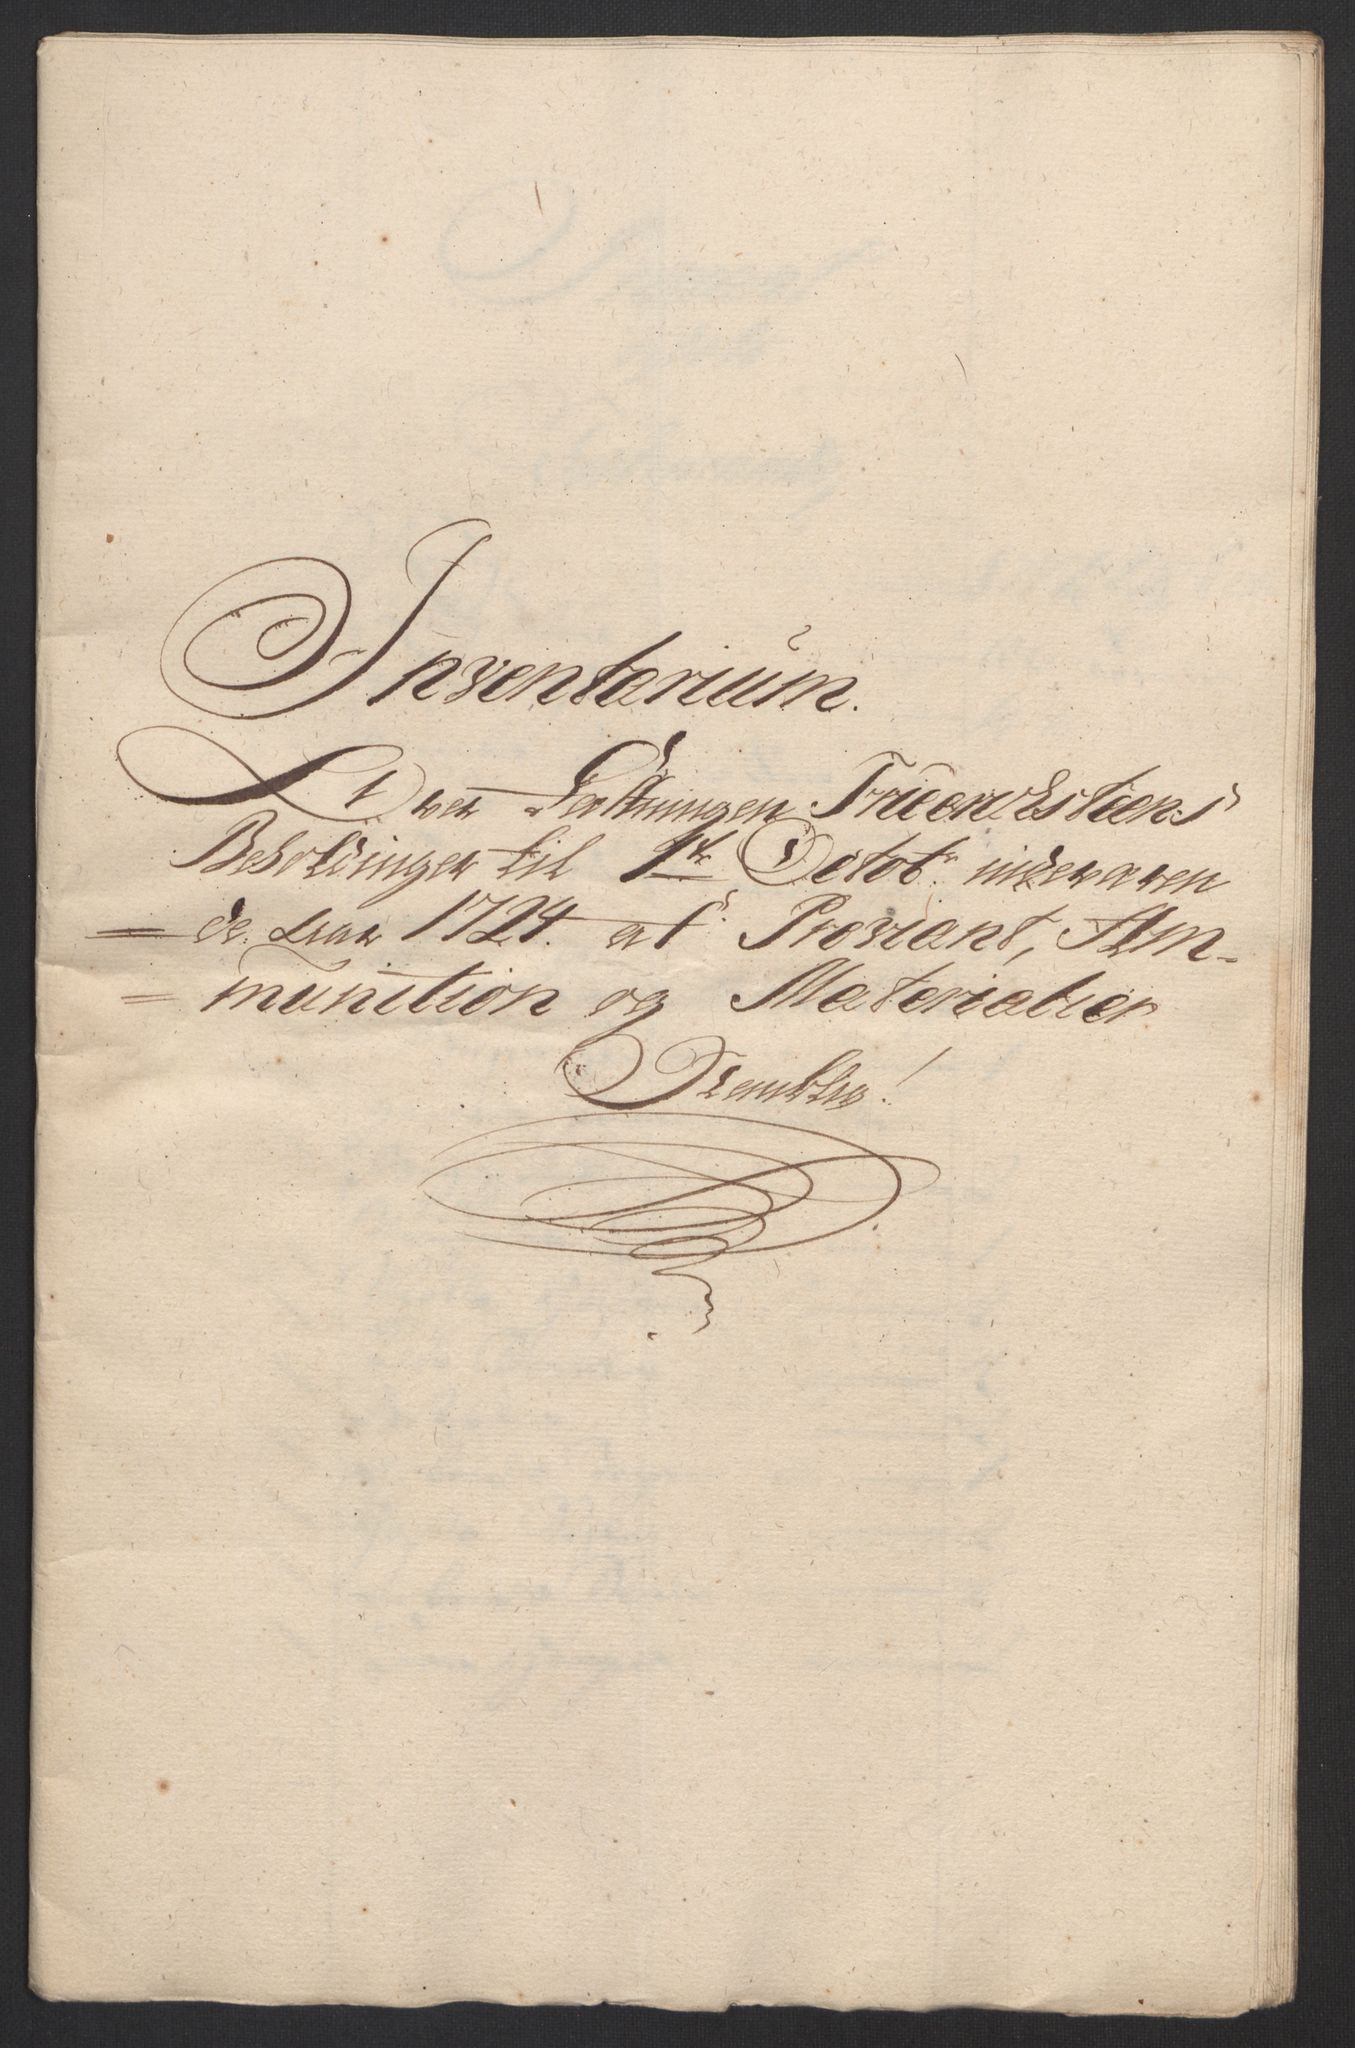 Inventarium.
Over Festningen Friderichsteens
Beholdninger til 1te Octobr: indeværen
= de Aar 1724. af Proviant, Am-
= munition og Materialier